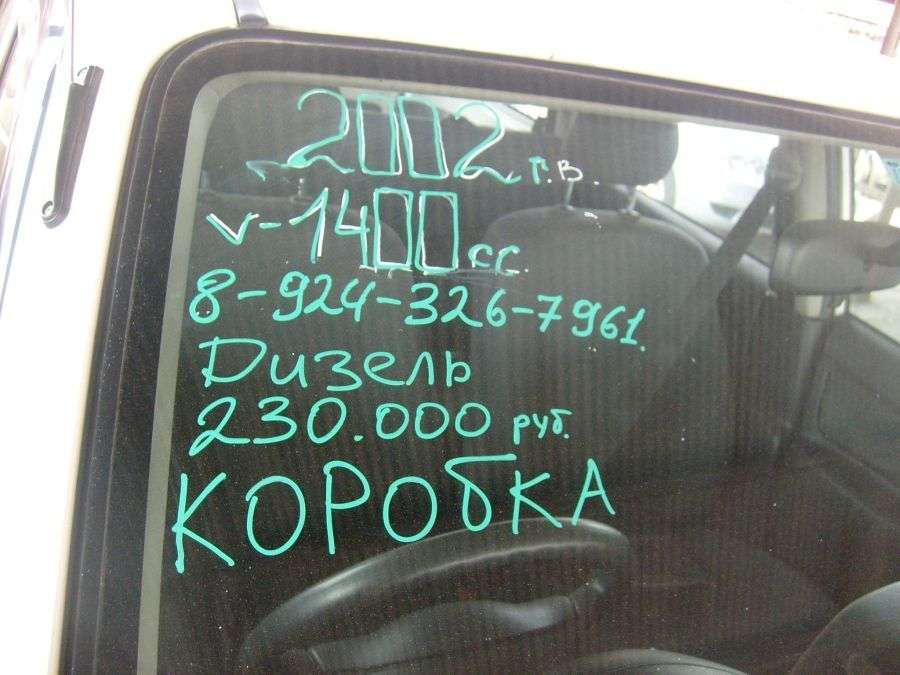 2002 г.в.
v-1400 сс.
8-924-326-7961.
Дизель
230.000 руб.
КОРОБКА